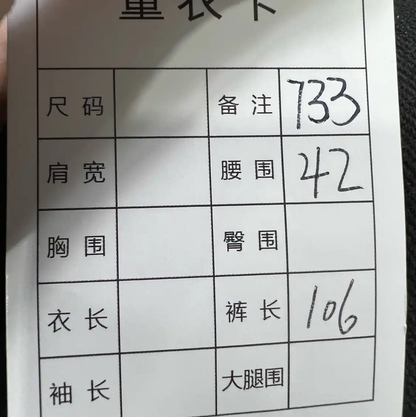 量衣卡
尺码 备注 733
肩宽 腰围 42
胸围 臀围
衣长 裤长 106
袖长 大腿围